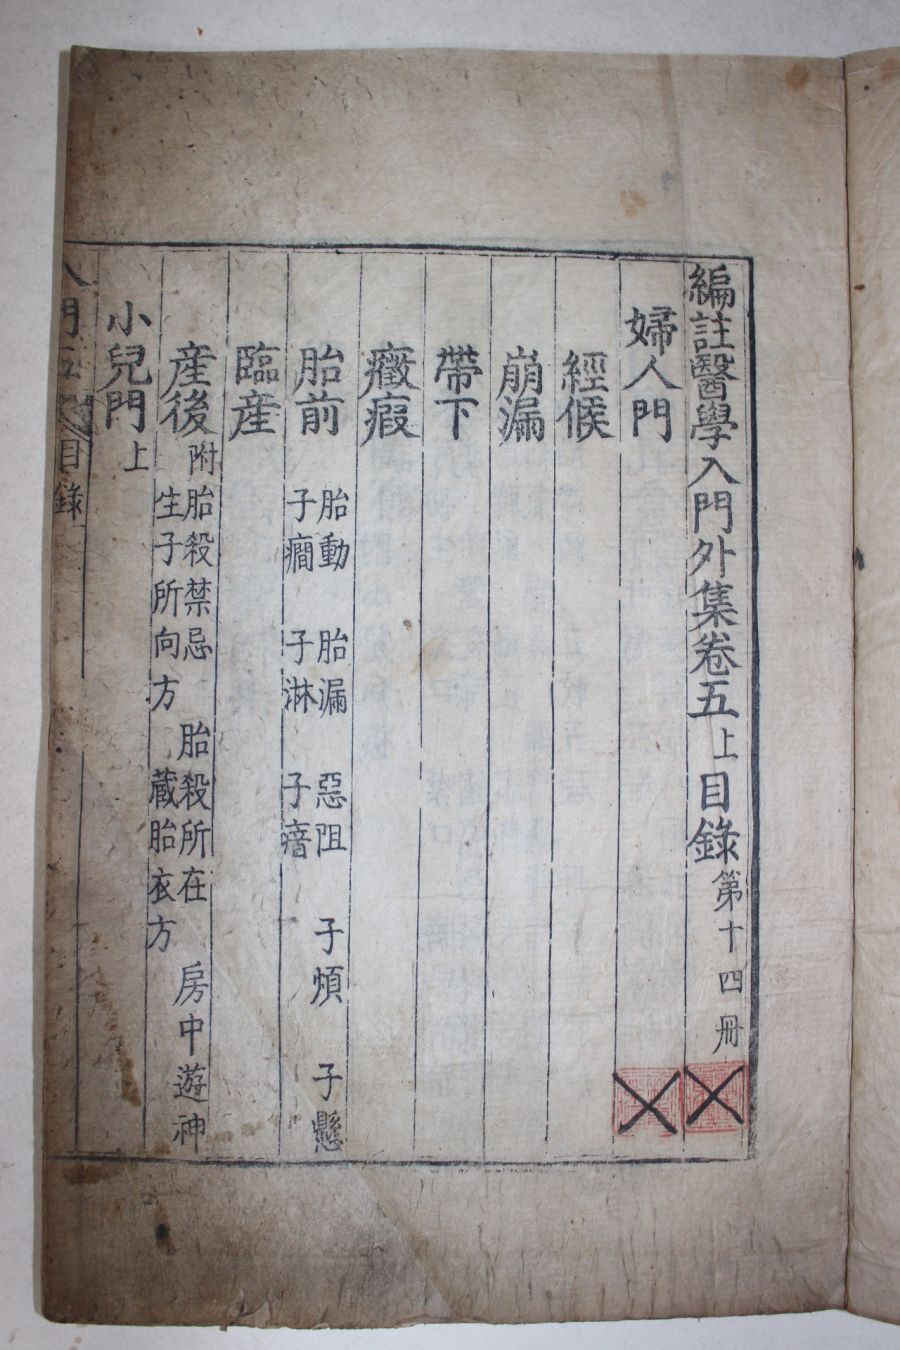 編註醫學入門外集卷五上目錄第十四册
婦人門
經候
崩漏
帶下
癥瘕
胎前
胎動 胎漏 惡阻 子煩 子懸
子癇 子淋 子瘖
臨産
産後
附胎殺禁忌 胎殺所在 房中遊神
生子所向方 藏胎衣方
小兒門上
入門 目錄